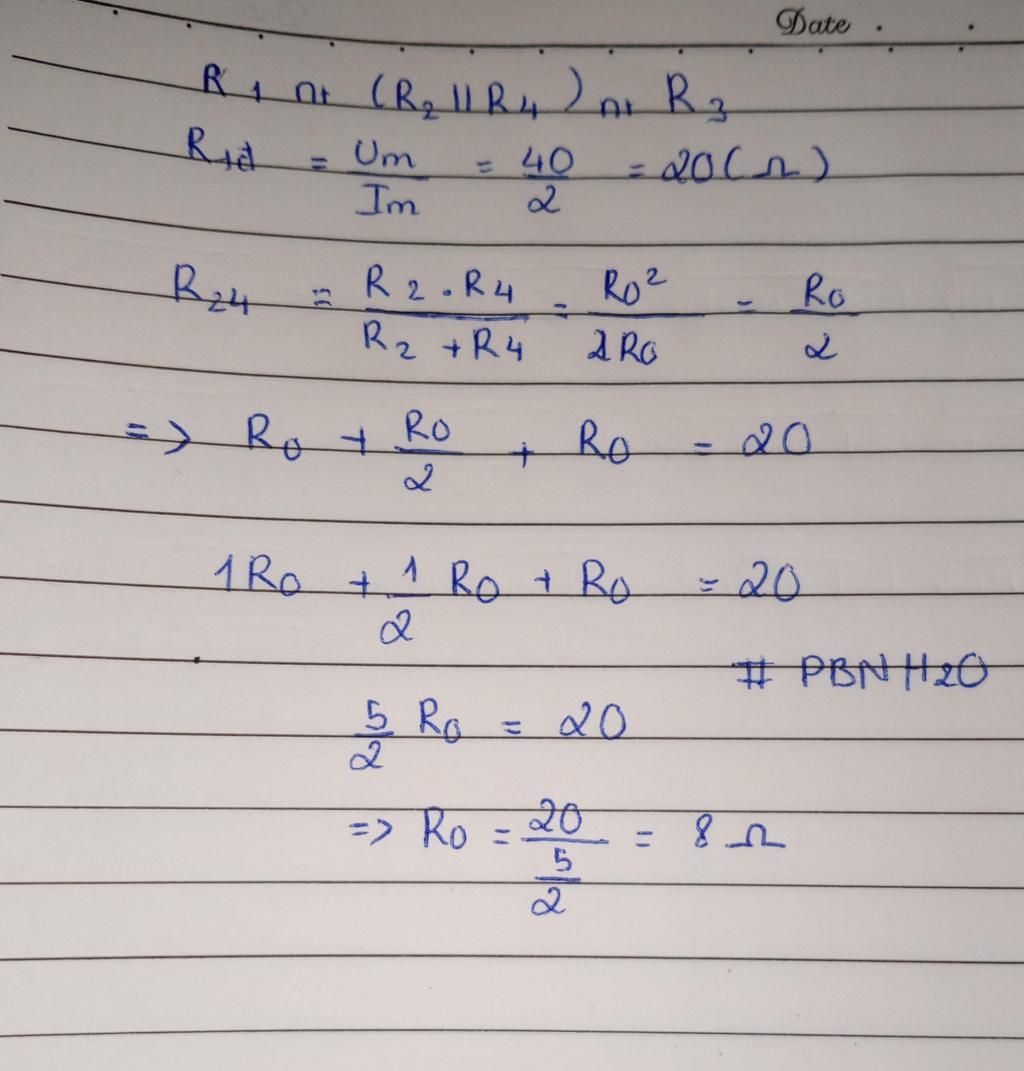 Date
R1 nt (R2 || R4) nt R3
Rtđ = Um/Im = 40/2 = 20 (Ω)
R24 = R2 . R4 / R2 + R4 = R0² / 2R0 = R0/2
=> R0 + R0/2 + R0 = 20
1R0 + 1/2 R0 + R0 = 20
# PBNH2O
5/2 R0 = 20
=> R0 = 20 / 5/2 = 8 Ω